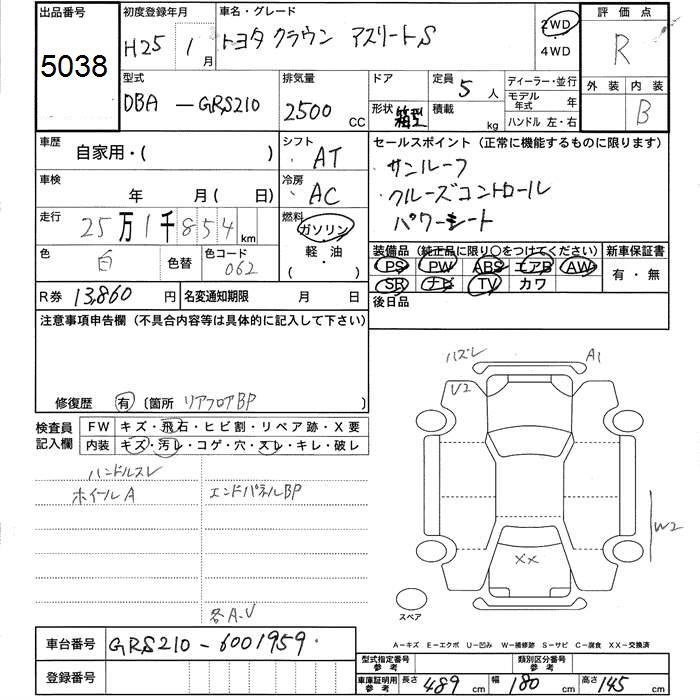 出品番号
5038
初度登録年月
H25 1月
車名・グレード
トヨタ クラウン アスリートS
2WD
4WD
評価点
R
外装 内装
B
型式
DBA-GRS210
排気量
2500 CC
ドア
形状 箱型
定員 5人
積載 kg
ディーラー・並行
モデル年式 年
ハンドル 左・右
車歴
自家用・( )
シフト
AT
セールスポイント (正常に機能するものに限ります)
・サンルーフ
・クルーズコントロール
パワーシート
車検
年 月( 日)
冷房
AC
走行
25万1千854km
燃料
ガソリン
・軽油
・( )
色
白
色替
色コード
062
装備品 (純正品に限り○をつけてください)
PS PW ABS エアB AW
SR ナビ TV カワ
新車保証書
有・無
R券 13,860円
名変通知期限 月 日
後日品
注意事項申告欄 (不具合内容等は具体的に記入して下さい)
修復歴 有 〔箇所 リアフロアBP
検査員記入欄
FW キズ・飛石・ヒビ割・リペア跡・X要
内装 キズ・汚レ・コゲ・穴・スレ・キレ・破レ
ハンドルスレ
ホイールA
エンドパネルBP
各A.U
ハズレ
A1
U2
W2
XX
スペア
車台番号
GRS210-6001959
登録番号
A-キズ E-エクボ U-凹み W-補修跡 S-サビ C-腐食 XX-交換済
型式指定番号参考
類別区分番号参考
車庫証明用参考
長さ 489cm
幅 180cm
高さ 145cm